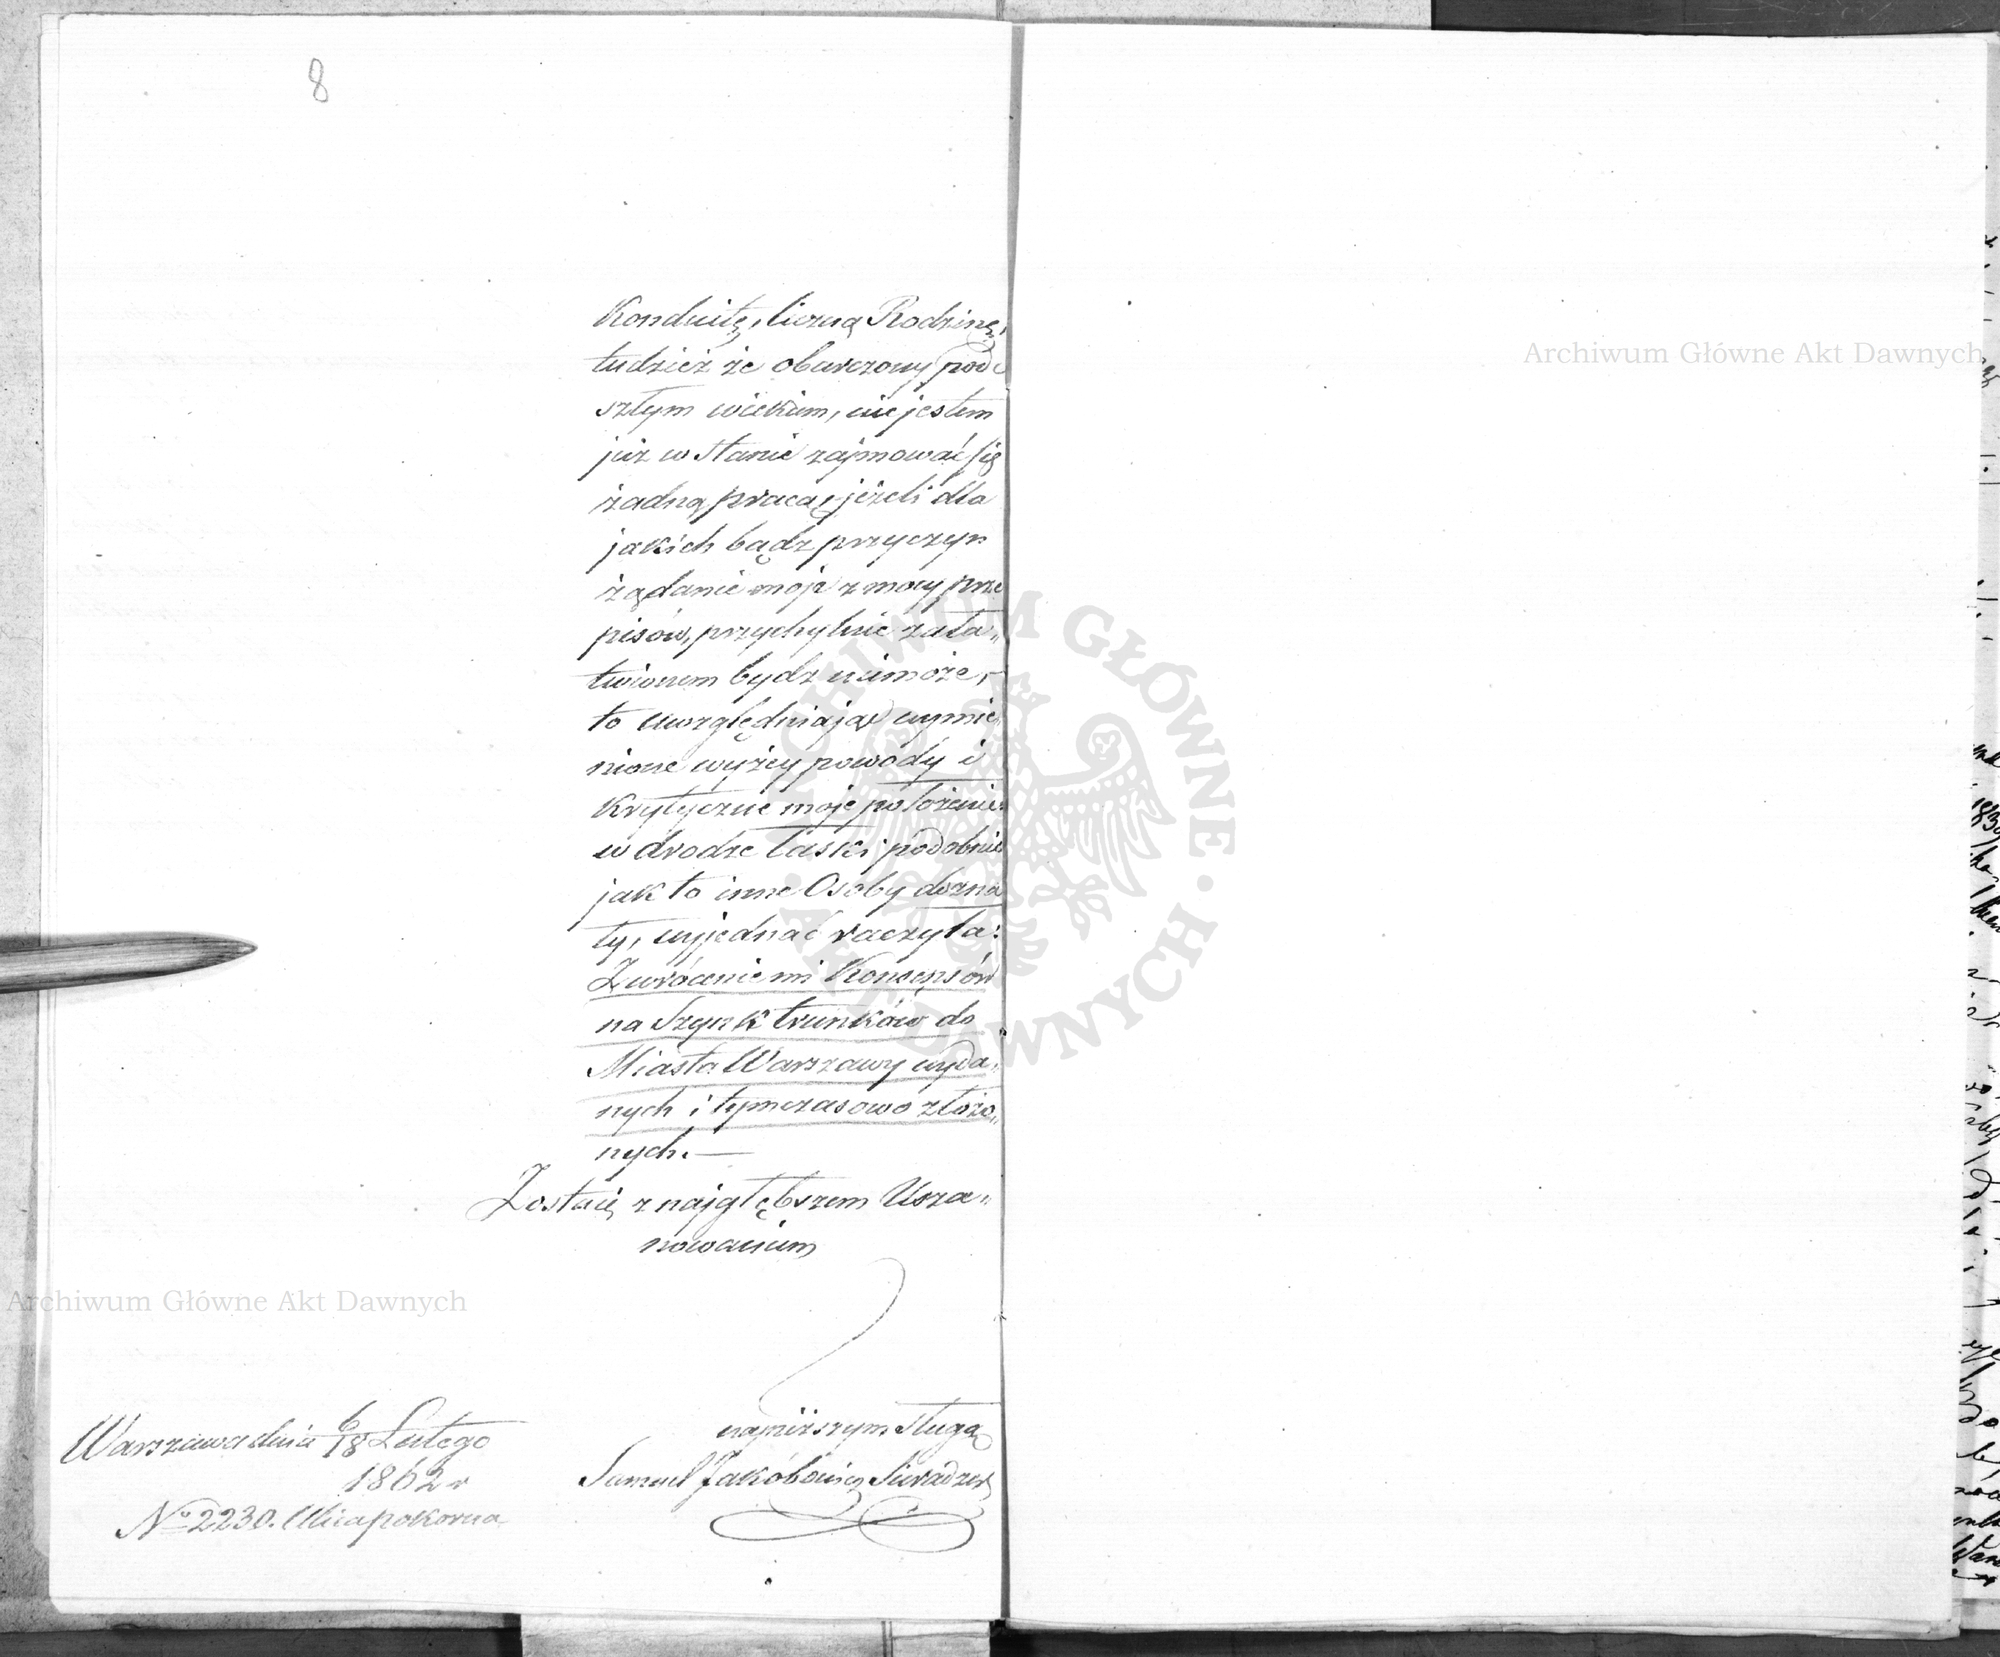 8
Konduitę, liczną Rodzinę,
tudzież że obarczony pode
szłym wiekiem, nie jestem
już w stanie zajmować się
żadną pracą, jeżeli dla
jakich bądz przyczyn
żądanie moje z mocy prze
pisów, przychylnie zała„
twionem bydz niemoże,
to uwzględniając wymie„
nione wyżey powody i
Krytyczne moje położenie
w drodze łaski podobnie
jak to inne Osoby dozna
ły, wyjednać raczyła:
Zwrócenie mi Konsensów
na Szynk trunków do
Miasta Warszawy wyda„
nych i tymczasowo złożo„
nych.—
Zostaię z najgłębszem Usza„
nowaniem
najniższym sługą
Samuel Jakóbowicz Sieradzer
Warszawa dnia 6/18 Lutego
1862 r
No 2230. Ulica pokorna
Archiwum Główne Akt Dawnych
Archiwum Główne Akt Dawnych
ARCHIWUM GŁÓWNE AKT DAWNYCH